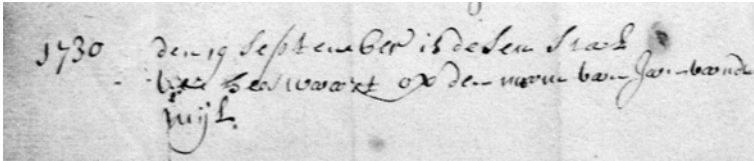 1730 den 19 September is desen Staek
ver heswaert op den naem van Jan vande
wijk.